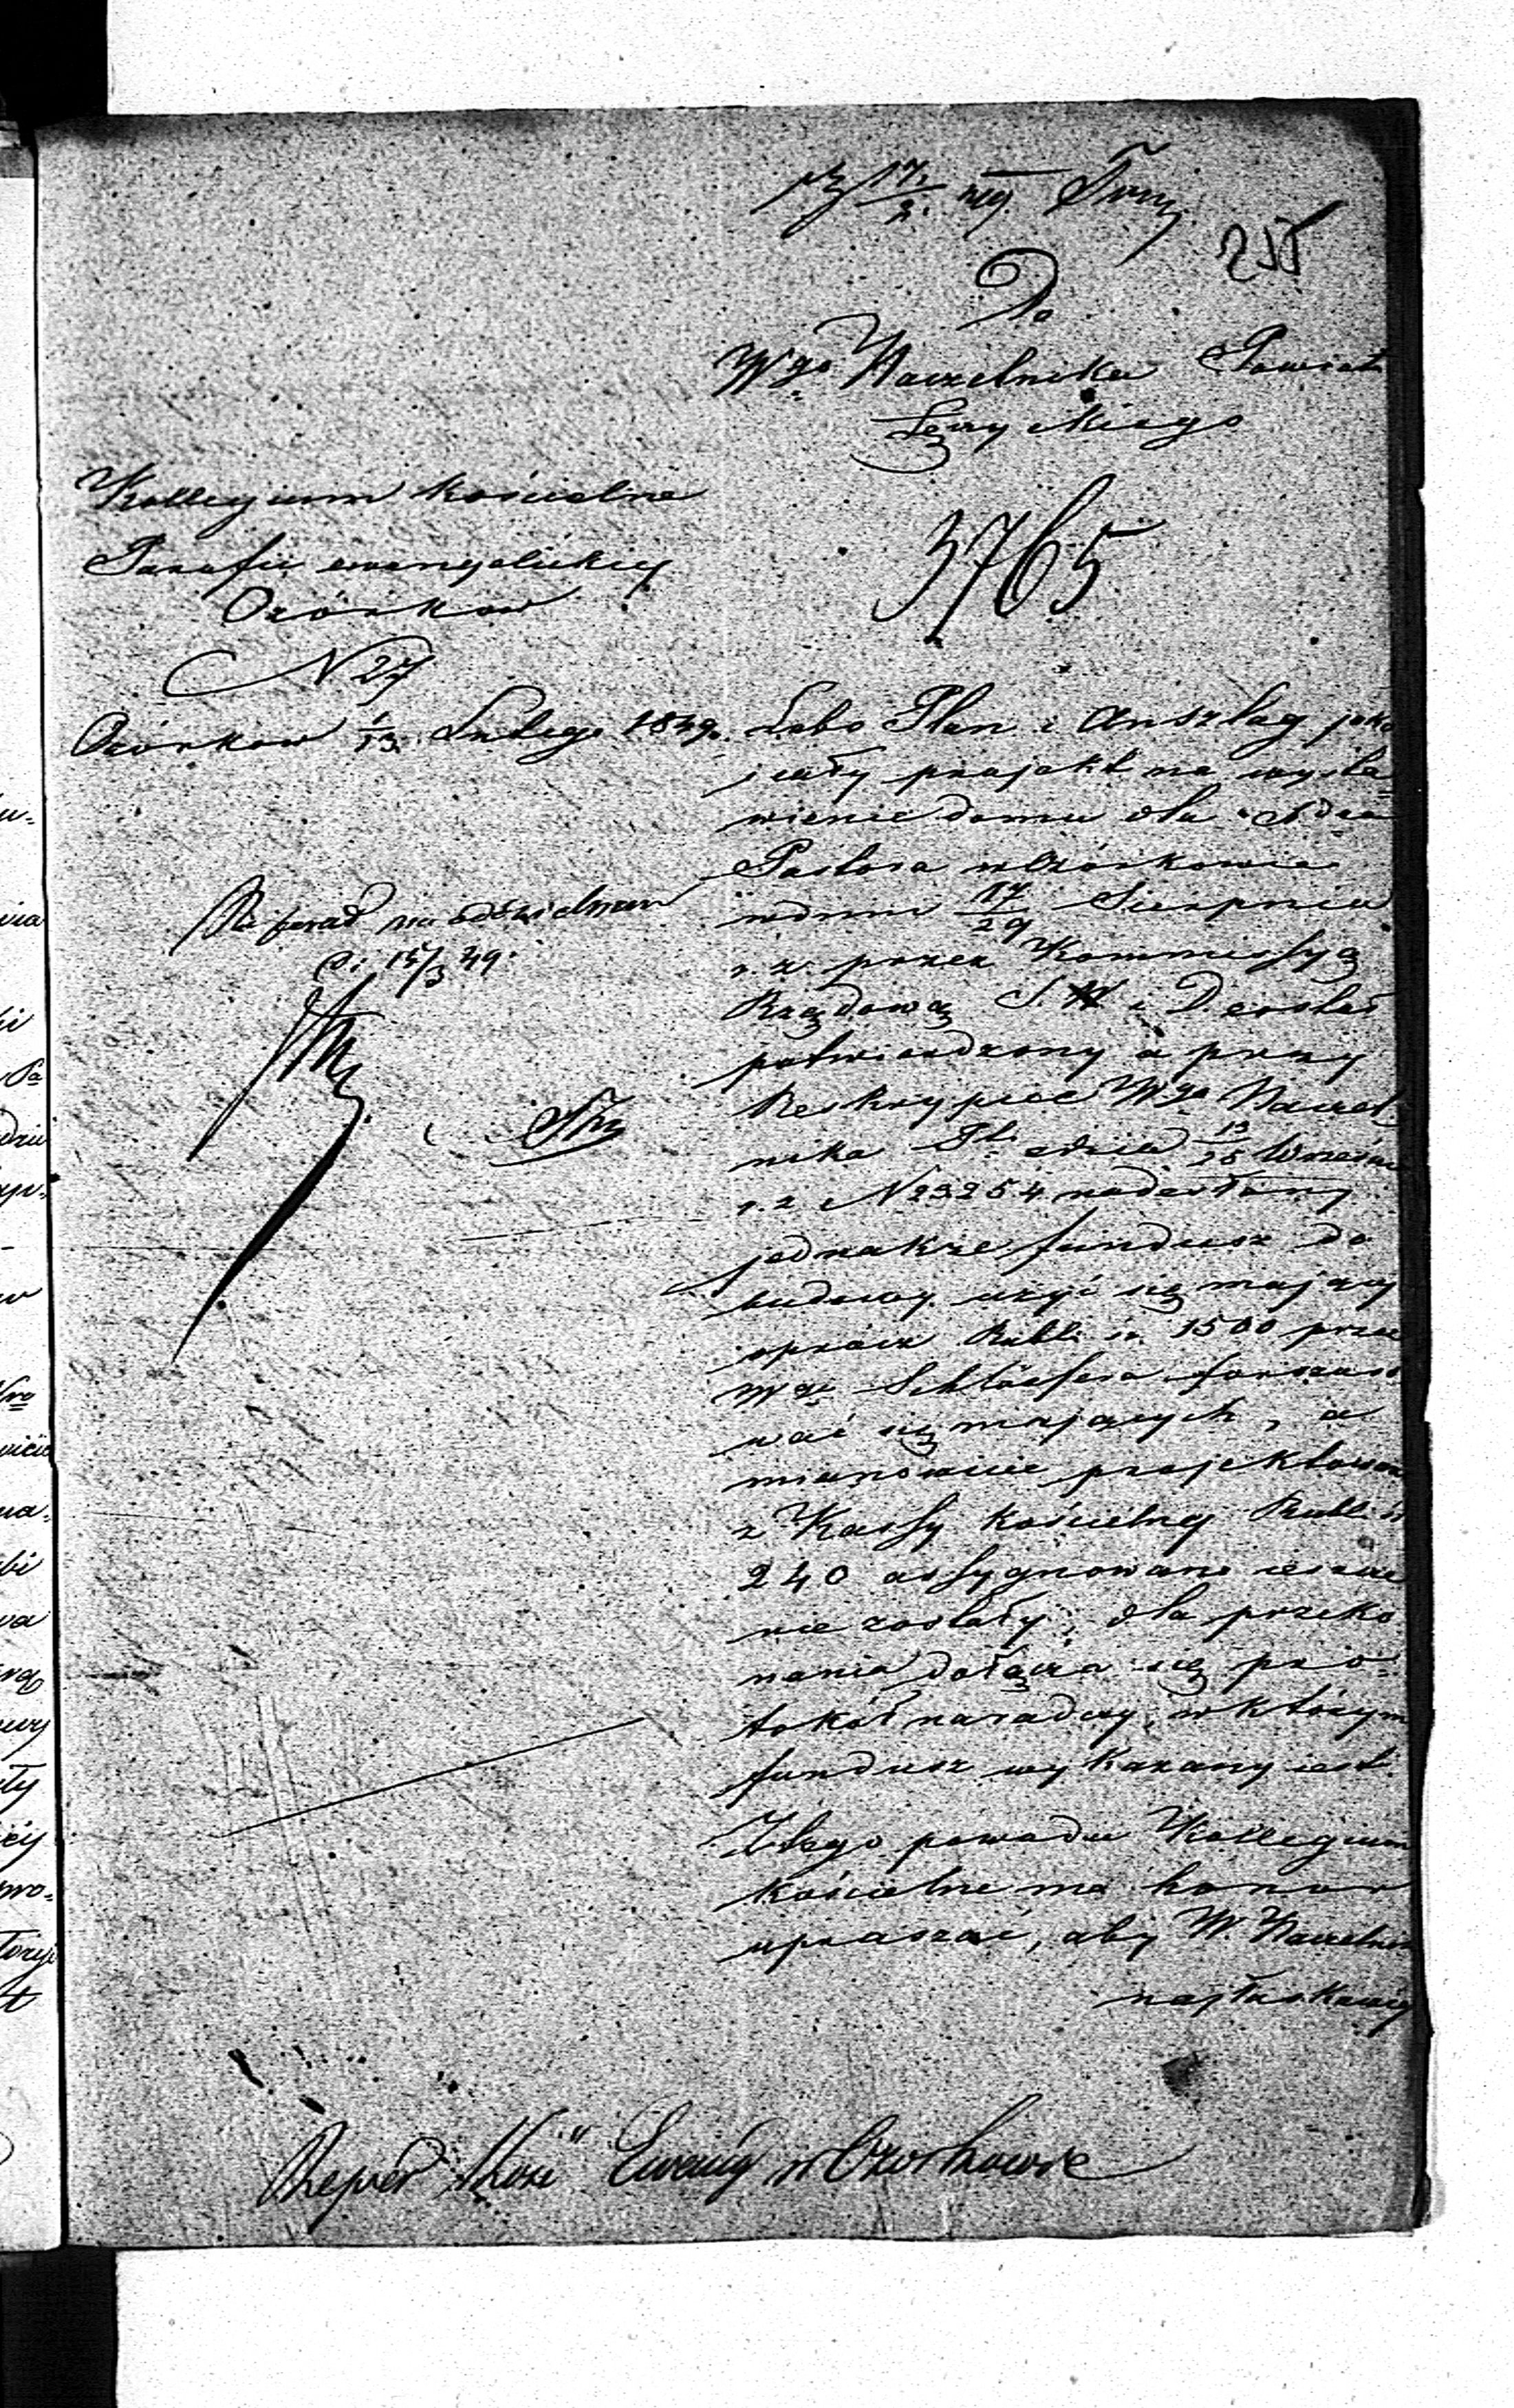 17/2 49
255
Do
Wgo Naczelnika Powiatu
Łęczyckiego
Kollegium kościelne
Parafii ewangelickiey
Ozórkow
N 27
Ozórkow 1/13 Lutego 1849.
3765
Lubo Plan i Anszlag jako
i cały projekt na wysta=
wienie domu dla Xdza
Pastora w Ozórkowie
wdniu 17/29 Sierpnia
r. z. przez Kommissyą
Rządową S. W i D. został
potwierdzony a przy
Reskrypcie Wgo Naczel=
nika Ptu zdnia 13/25 Wrześni
r. z N 23254 nadesłany
jednakże fundusz do
budowy użyć się mający
oprócz Rubli sr. 1500 przez
Wgo Schlössera forszuso
wać się mających, a
mianowicie projektowane
z Kassy kościelney Rubli sr
240 assygnowane ieszcze
nie zostały; dla przeko
nania dołącza się pro=
tokół naradczy, w którym
fundusz wykazany iest.
Ztego powodu Kollegium
kościelne ma honor
upraszać, aby W. Naczelnik
najłaskawiey
na
15/3 49.
Kośc Ewang w Ozorkowie